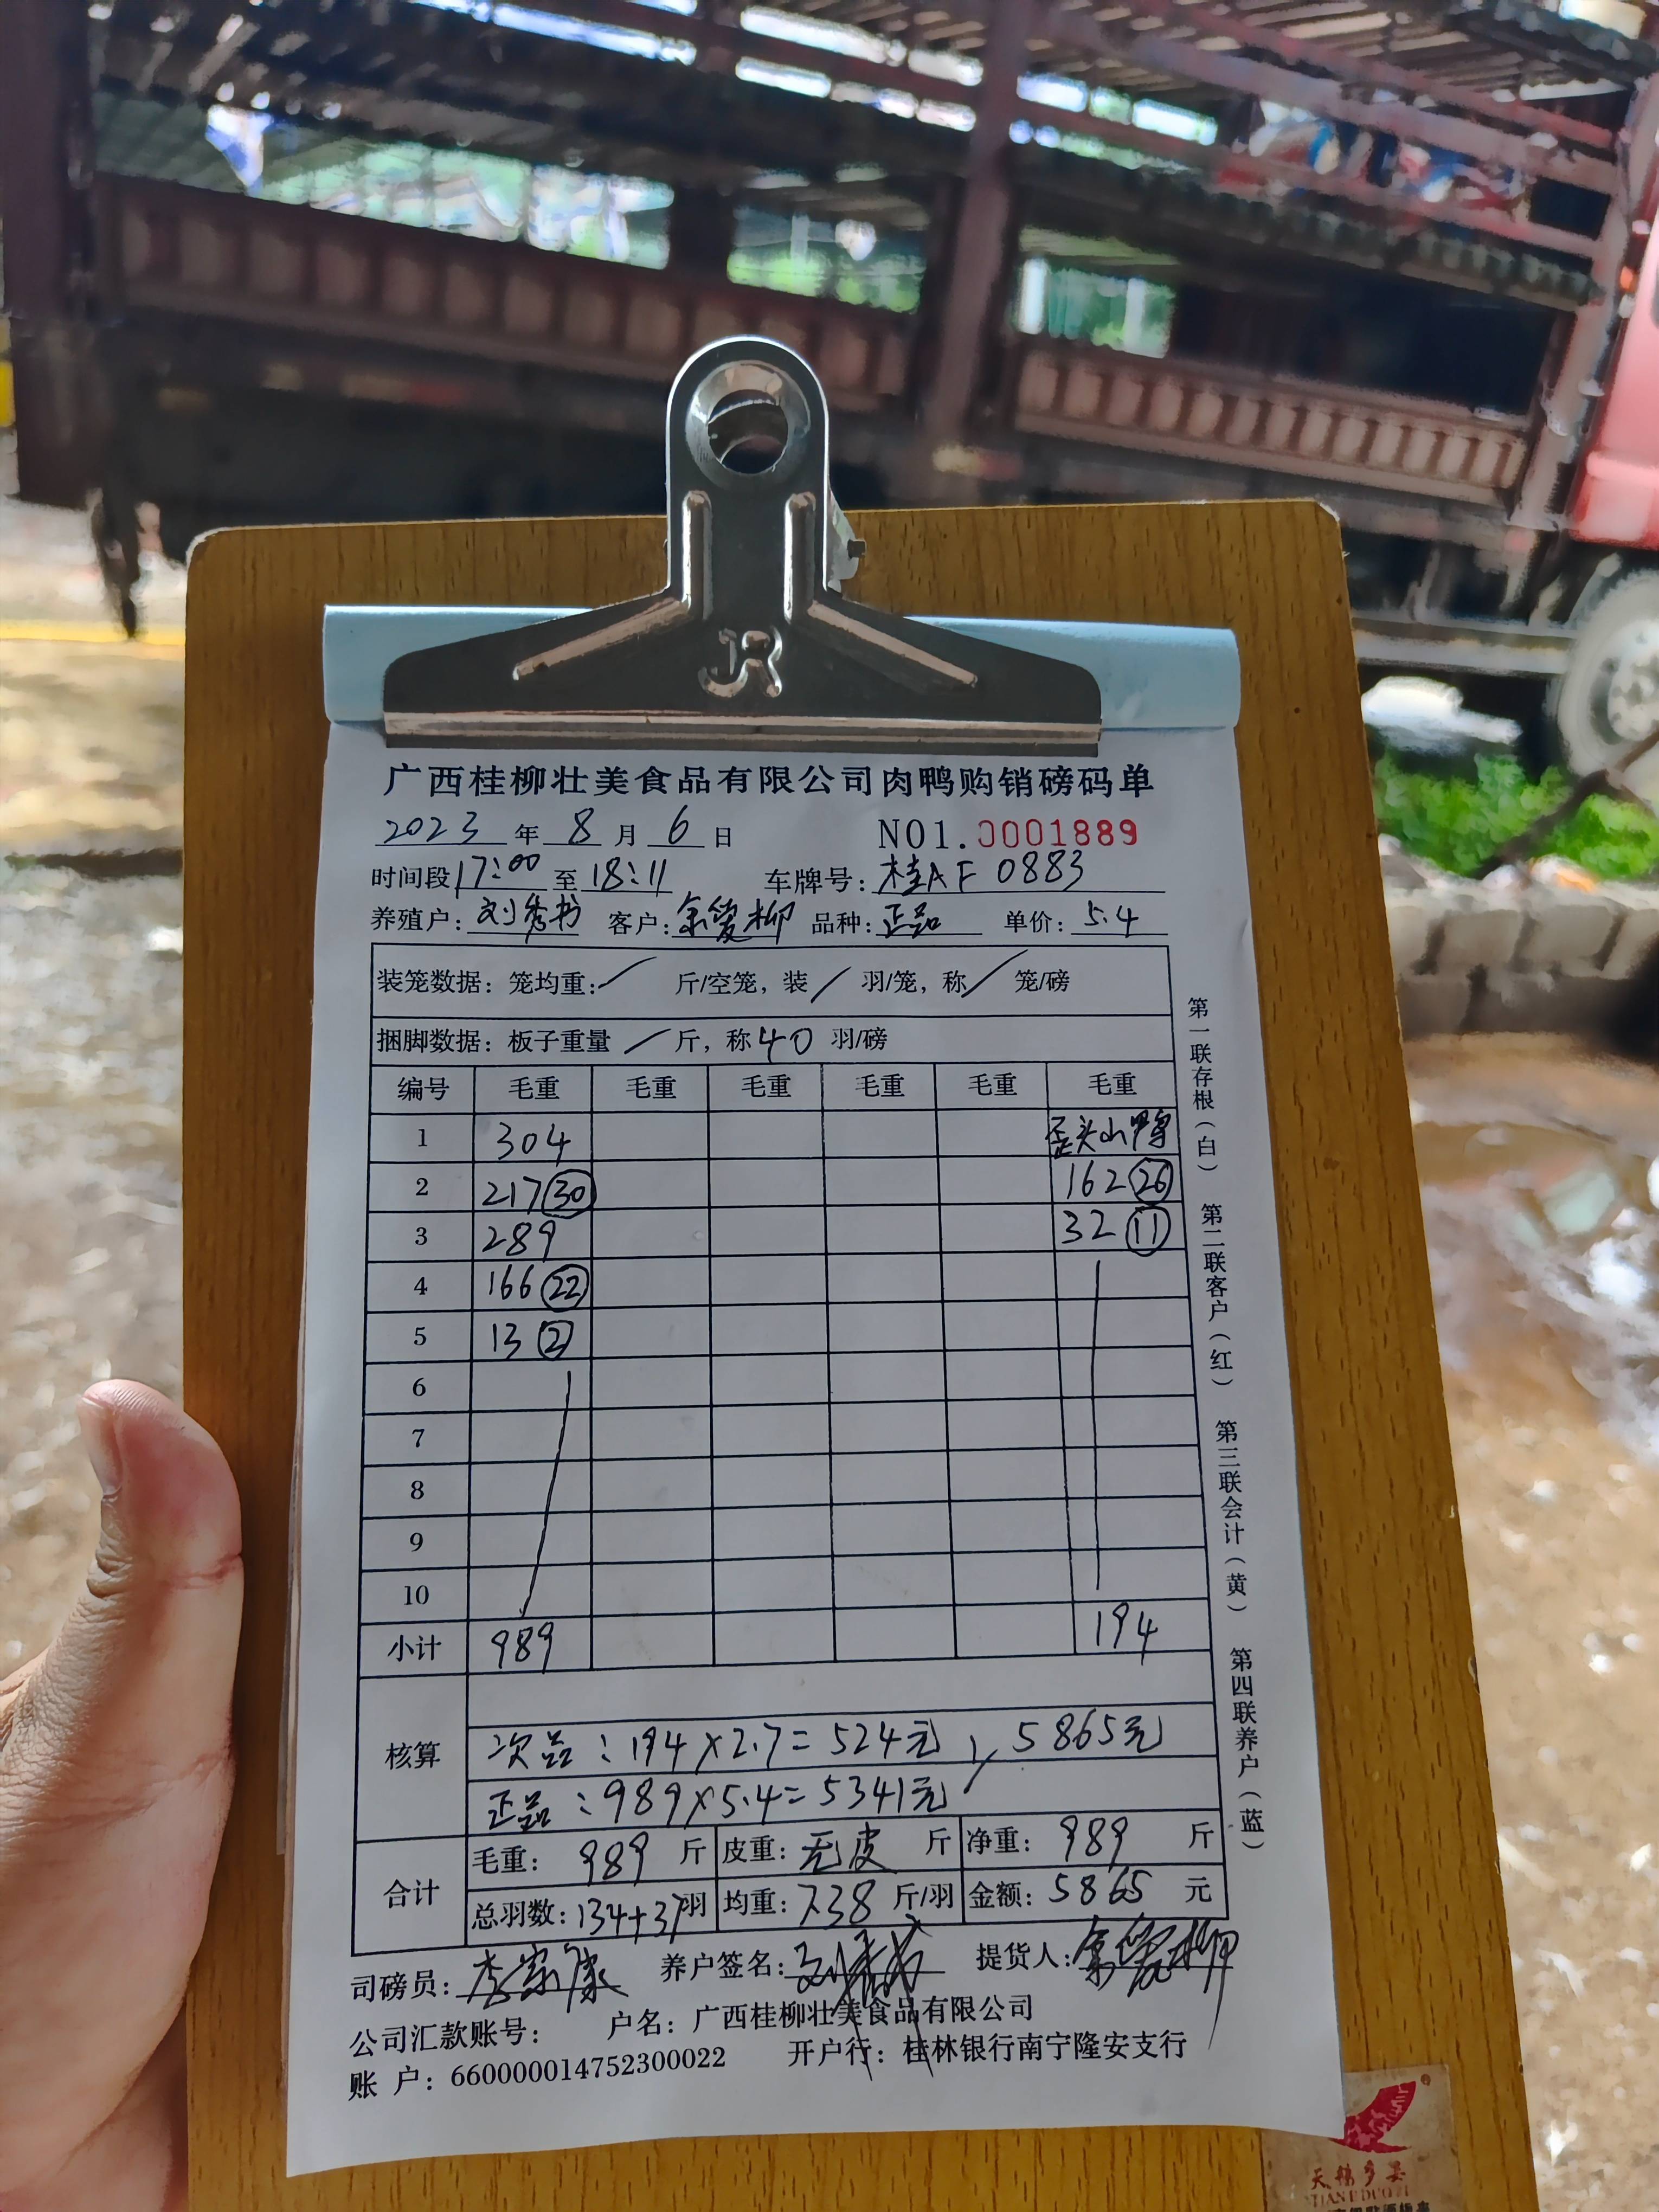 JR
广西桂柳壮美食品有限公司肉鸭购销磅码单
2023 年 8 月 6 日 NO1.0001889
时间段 17:00 至 18:11 车牌号: 桂AF 0883
养殖户: 刘秀书 客户: 余爱柳 品种: 正品 单价: 5.4
装笼数据: 笼均重: / 斤/空笼, 装 / 羽/笼, 称 / 笼/磅
捆脚数据: 板子重量 / 斤, 称 40 羽/磅
编号 毛重 毛重 毛重 毛重 毛重 毛重
1 304 歪头小鸭
2 217 30 162 26
3 289 32 11
4 166 22
5 13 2
6
7
8
9
10
小计 989 194
核算
次品: 194×2.7=524元, 5865元
正品: 989×5.4=5341元
合计
毛重: 989 斤 皮重: 无皮 斤 净重: 989 斤
总羽数: 134+37羽 均重: 7.38 斤/羽 金额: 5865 元
司磅员: 李家康 养户签名: 提货人: 余爱柳
公司汇款账号: 户名: 广西桂柳壮美食品有限公司
账 户: 660000014752300022 开户行: 桂林银行南宁隆安支行
第一联存根(白) 第二联客户(红) 第三联会计(黄) 第四联养户(蓝)